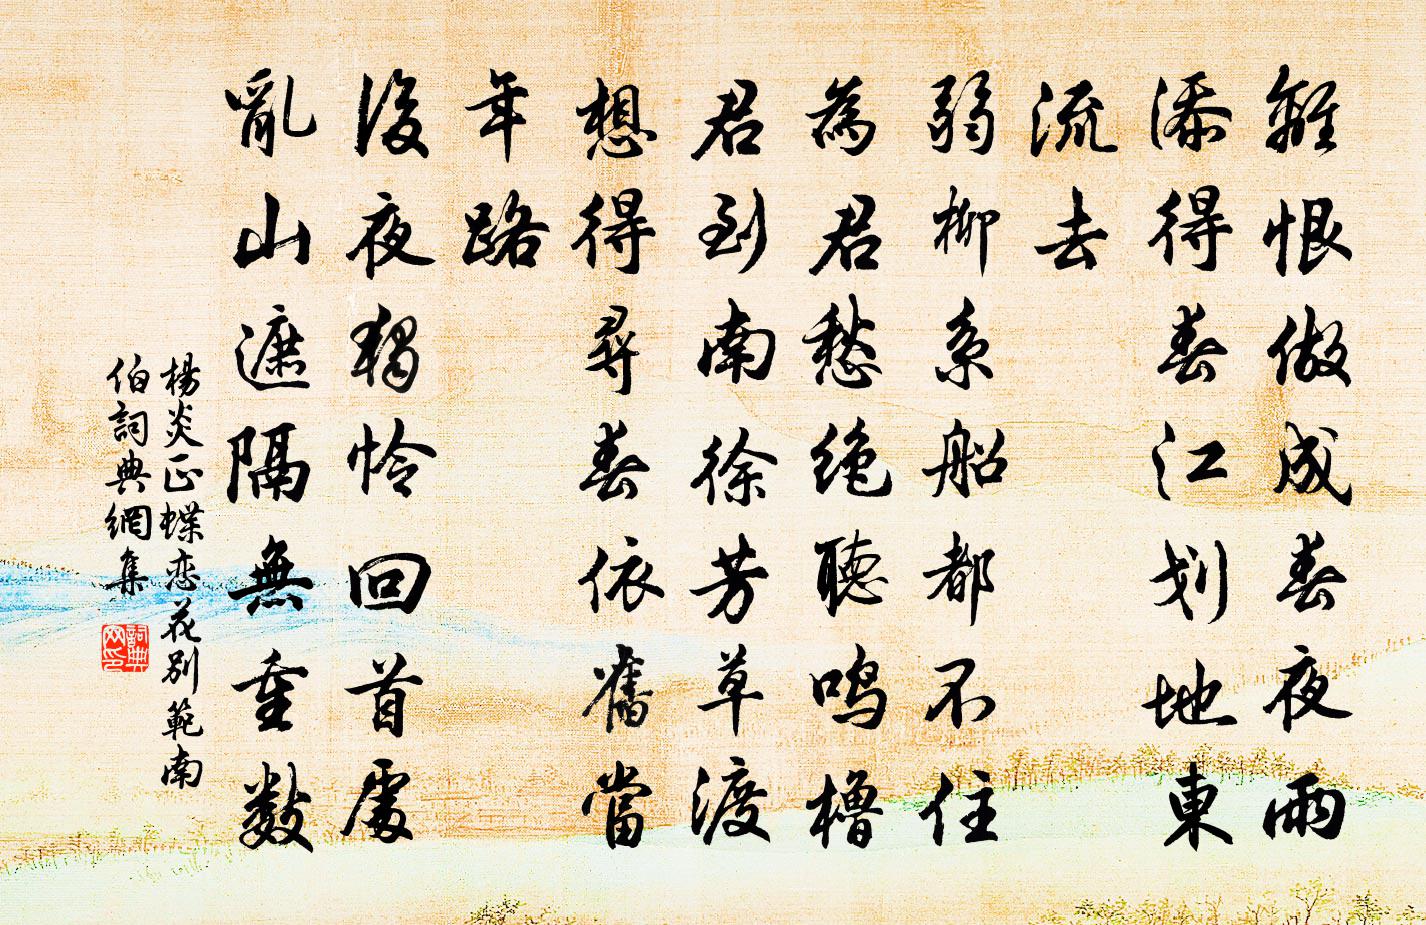 離恨做成春夜雨
添得春江划地東
流去
弱柳系船都不住
為君愁絶聽鳴櫓
君到南徐芳草渡
想得尋春依舊當
年路
後夜獨憐回首處
亂山遮隔無重數
楊炎正蝶恋花別範南
伯詞典網集
詞典
网印